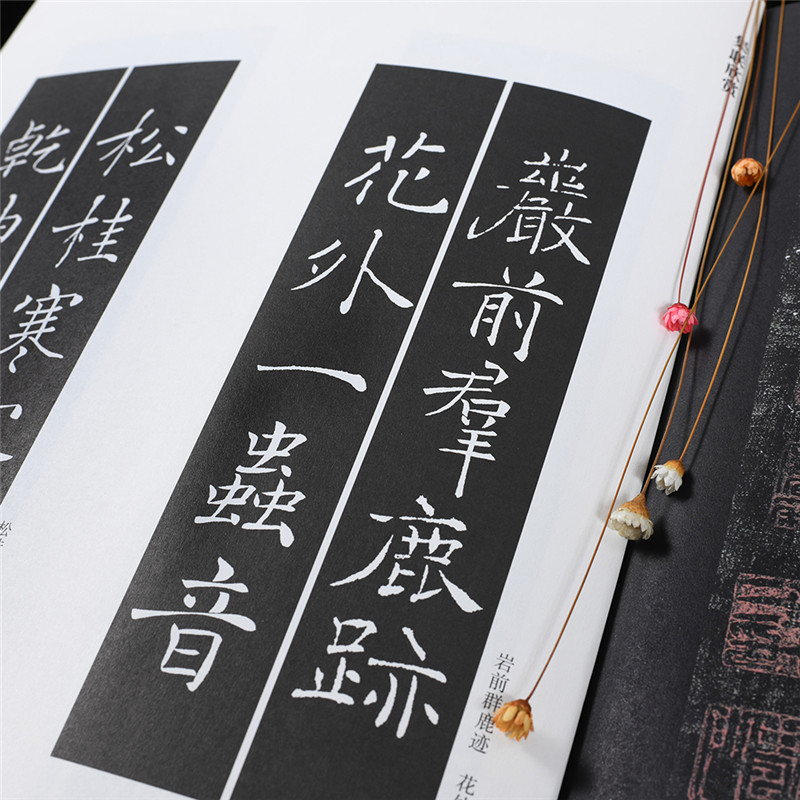 集联欣赏
巖前羣鹿跡
花外一蟲音
岩前群鹿迹 花
松桂寒
乾
松